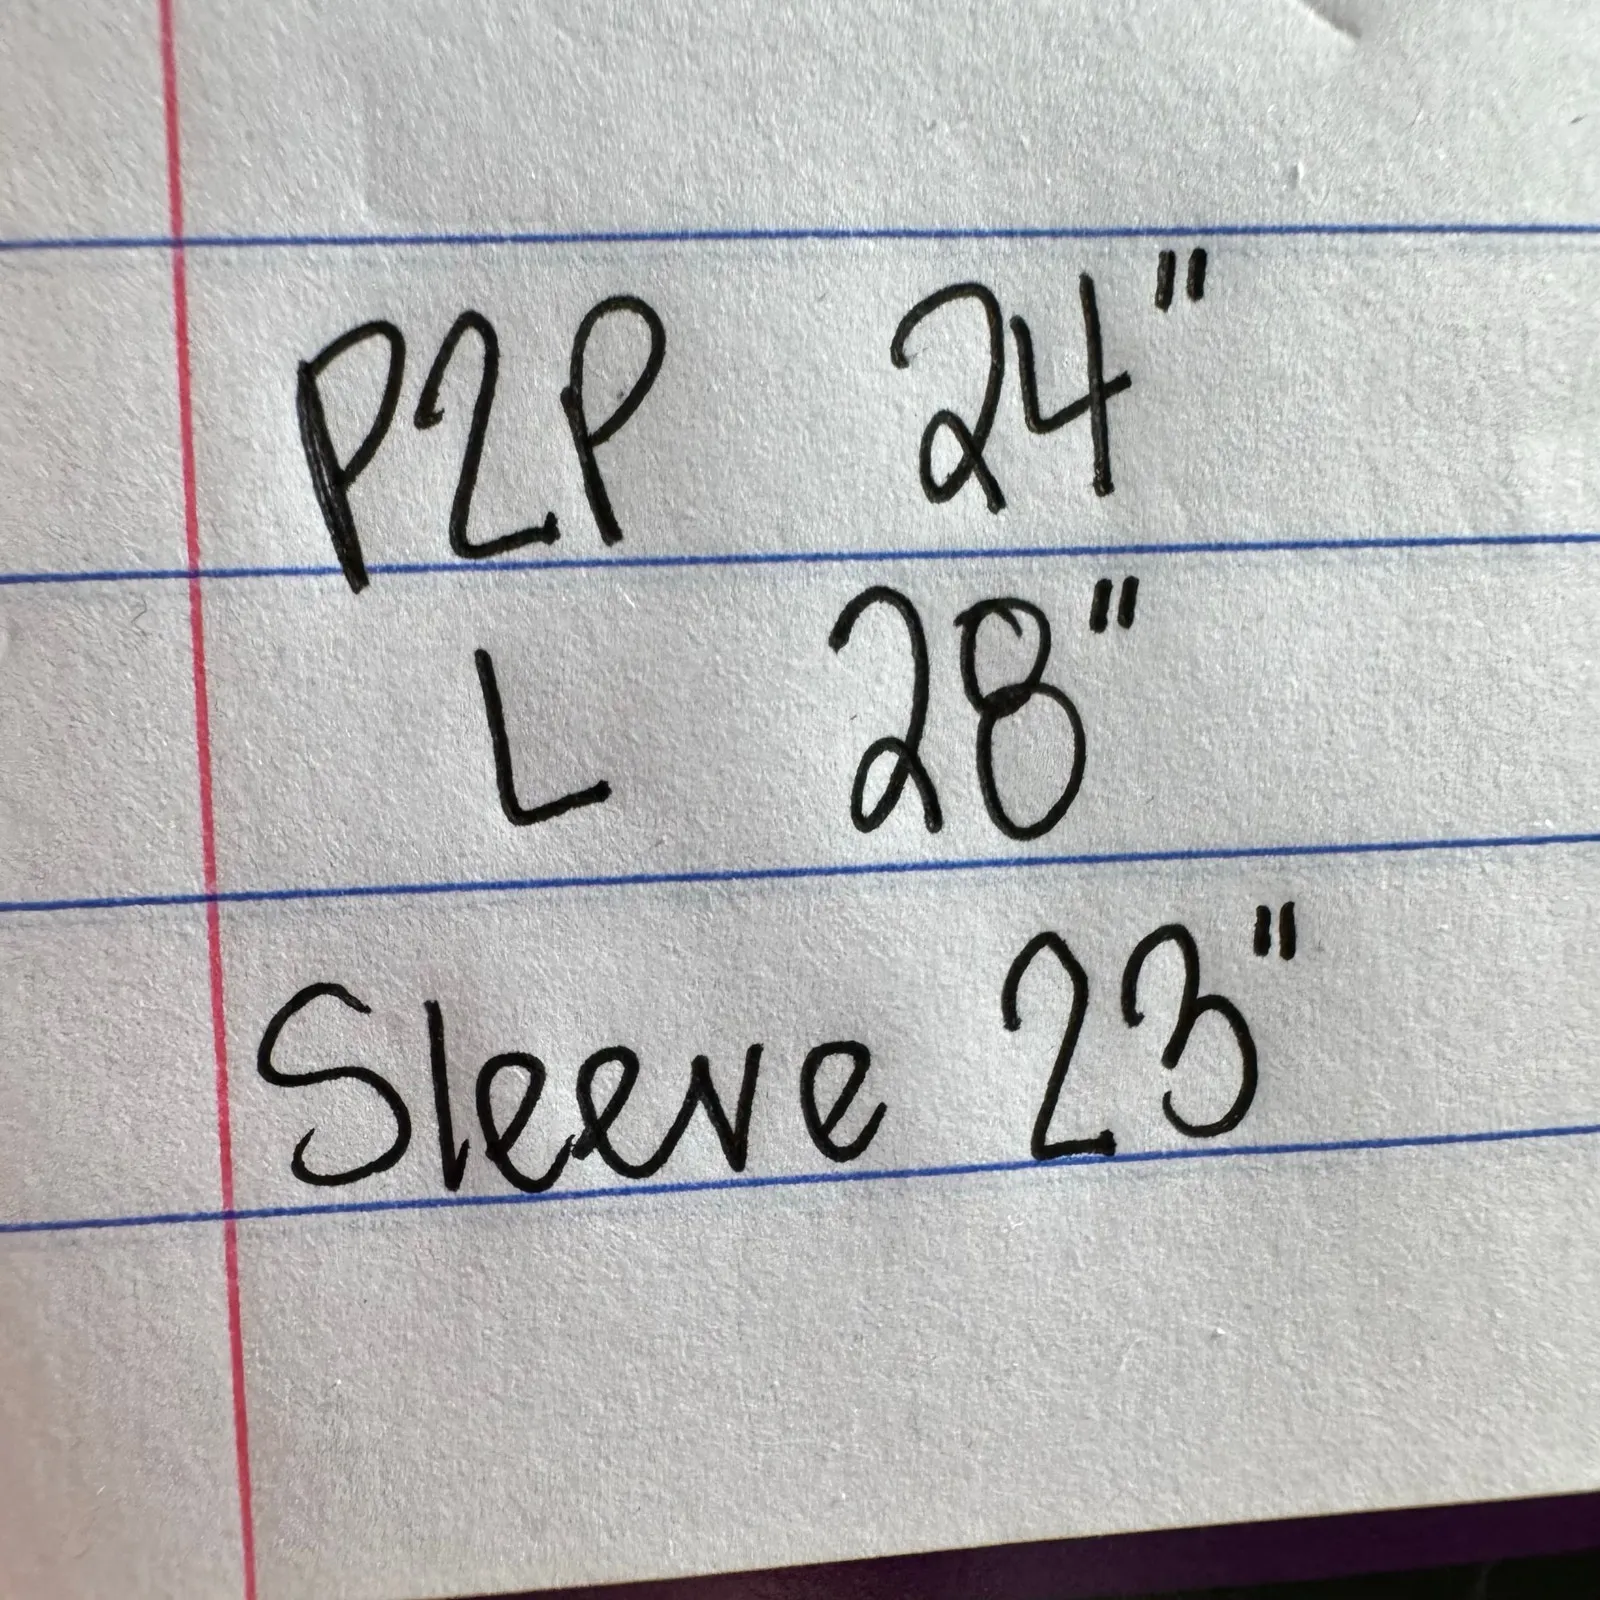 P2P 24"
L 28"
Sleeve 23"